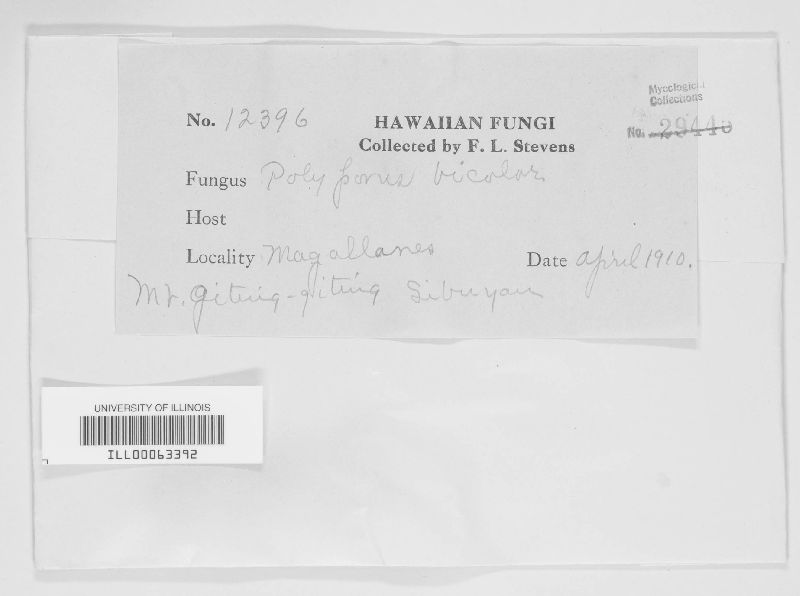 No. 12396
HAWAIIAN FUNGI
Collected by F. L. Stevens
Mycological
Collections
No. 29440
Fungus Polyporus bicolor
Host
Locality Magallanes
Date April 1910.
Mt. Giting-giting Sibuyan
UNIVERSITY OF ILLINOIS
ILL00063392